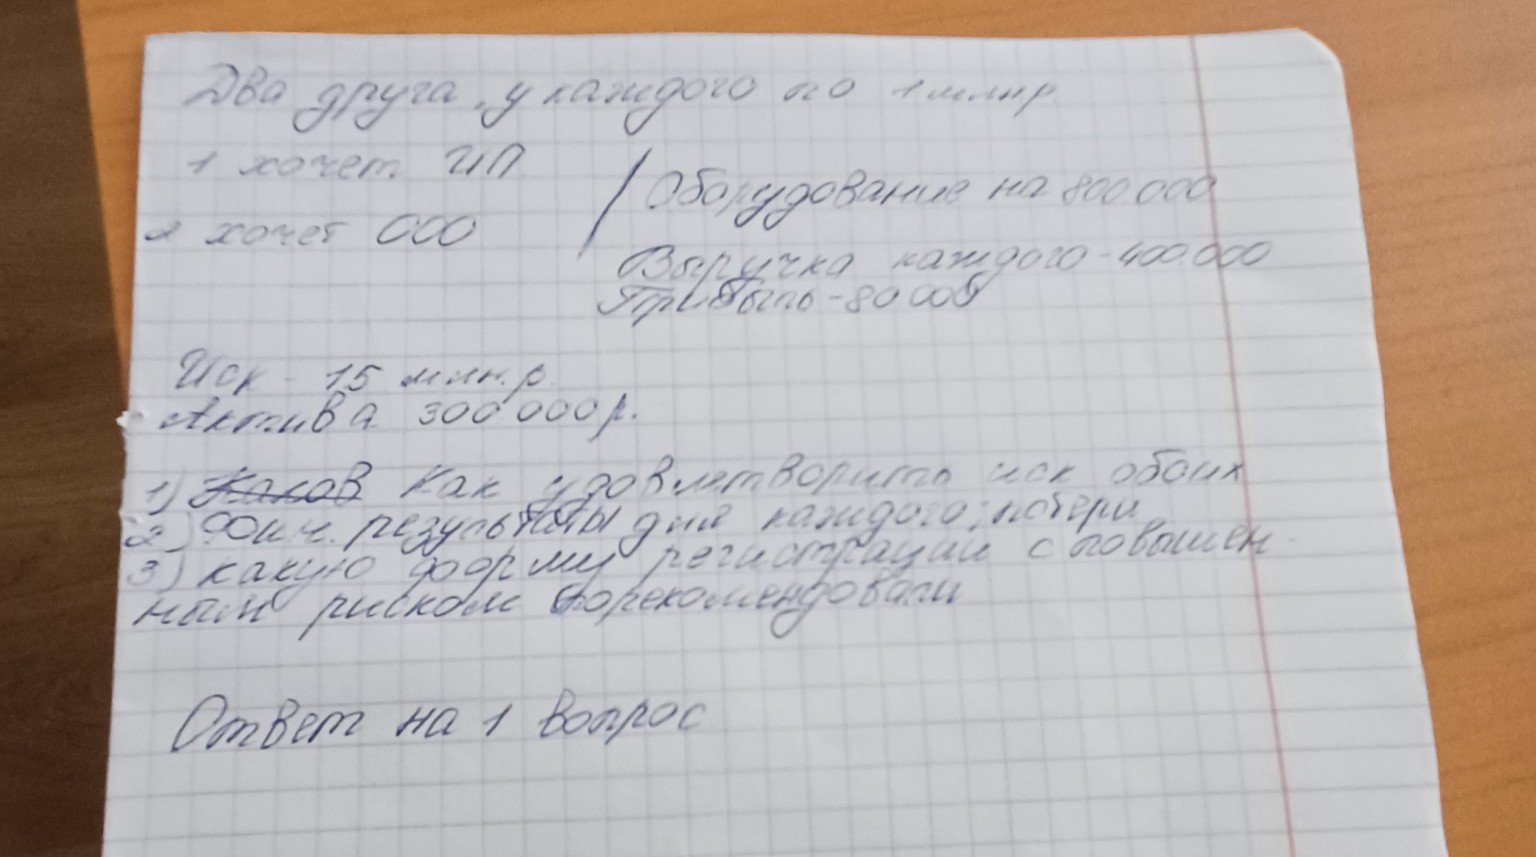 Два друга, у каждого по 1 млн р.
1 хочет ИП
/ Оборудование на 800 000
2 хочет ООО
Выручка каждого - 400 000
Прибыль - 80 000
Иск - 15 млн. р.
Актива 300 000 р.
1) Как удовлетворить иск обоих
2) Фин. результаты для каждого; потери
3) какую форму регистрации с повышен-
ным риском порекомендовали
Ответ на 1 вопрос